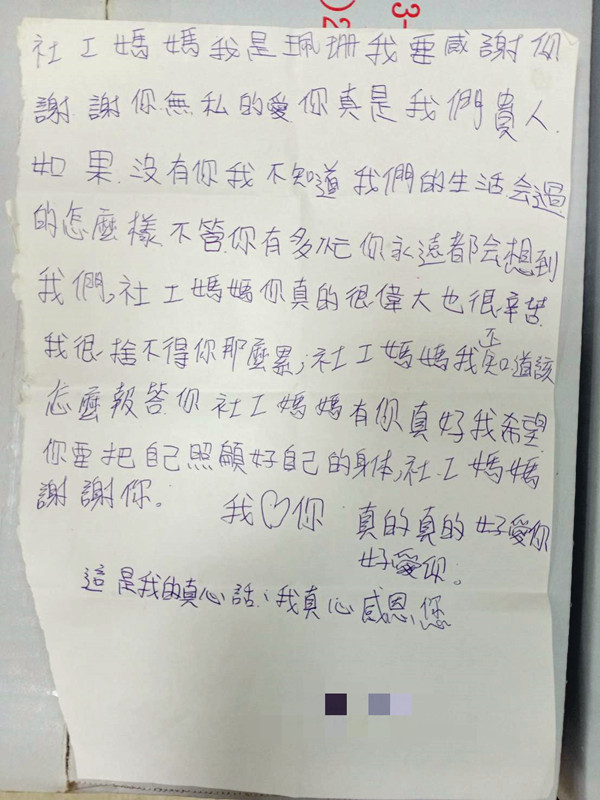 3-
)2
社工媽媽我是珮珊我要感謝你
謝謝你無私的愛你真是我們貴人.
如果.沒有你我不知道我們的生活会過
的怎麼樣不管你有多忙你永遠都会想到
我們,社工媽媽你真的很偉大也很辛苦.
我很捨不得你那麼累;社工媽媽我不知道該
怎麼報答你社工媽媽有你真好我希望
你要把自己照顧好自己的身体,社工媽媽
謝謝你。 我♡你 真的真的好愛你
好愛你。
這是我的真心話;我真心感恩您